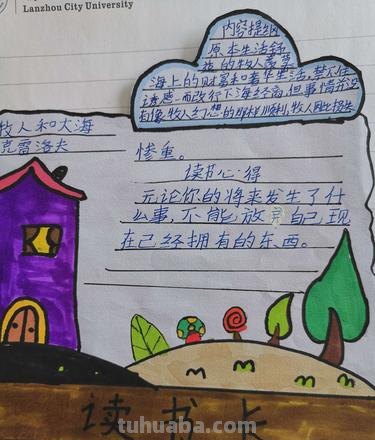 Lanzhou City University
内容提纲
原本生活舒
适的牧人羡慕
海上的财富和奢华生活,禁不住
诱惑而改行下海经商,但事情并没
有像牧人幻想的那样顺利,牧人因此损失
惨重。
牧人和大海
克雷洛夫
读书心得
无论你的将来发生了什
么事,不能放弃自己现
在已经拥有的东西。
读书卡
tuhuaba.com